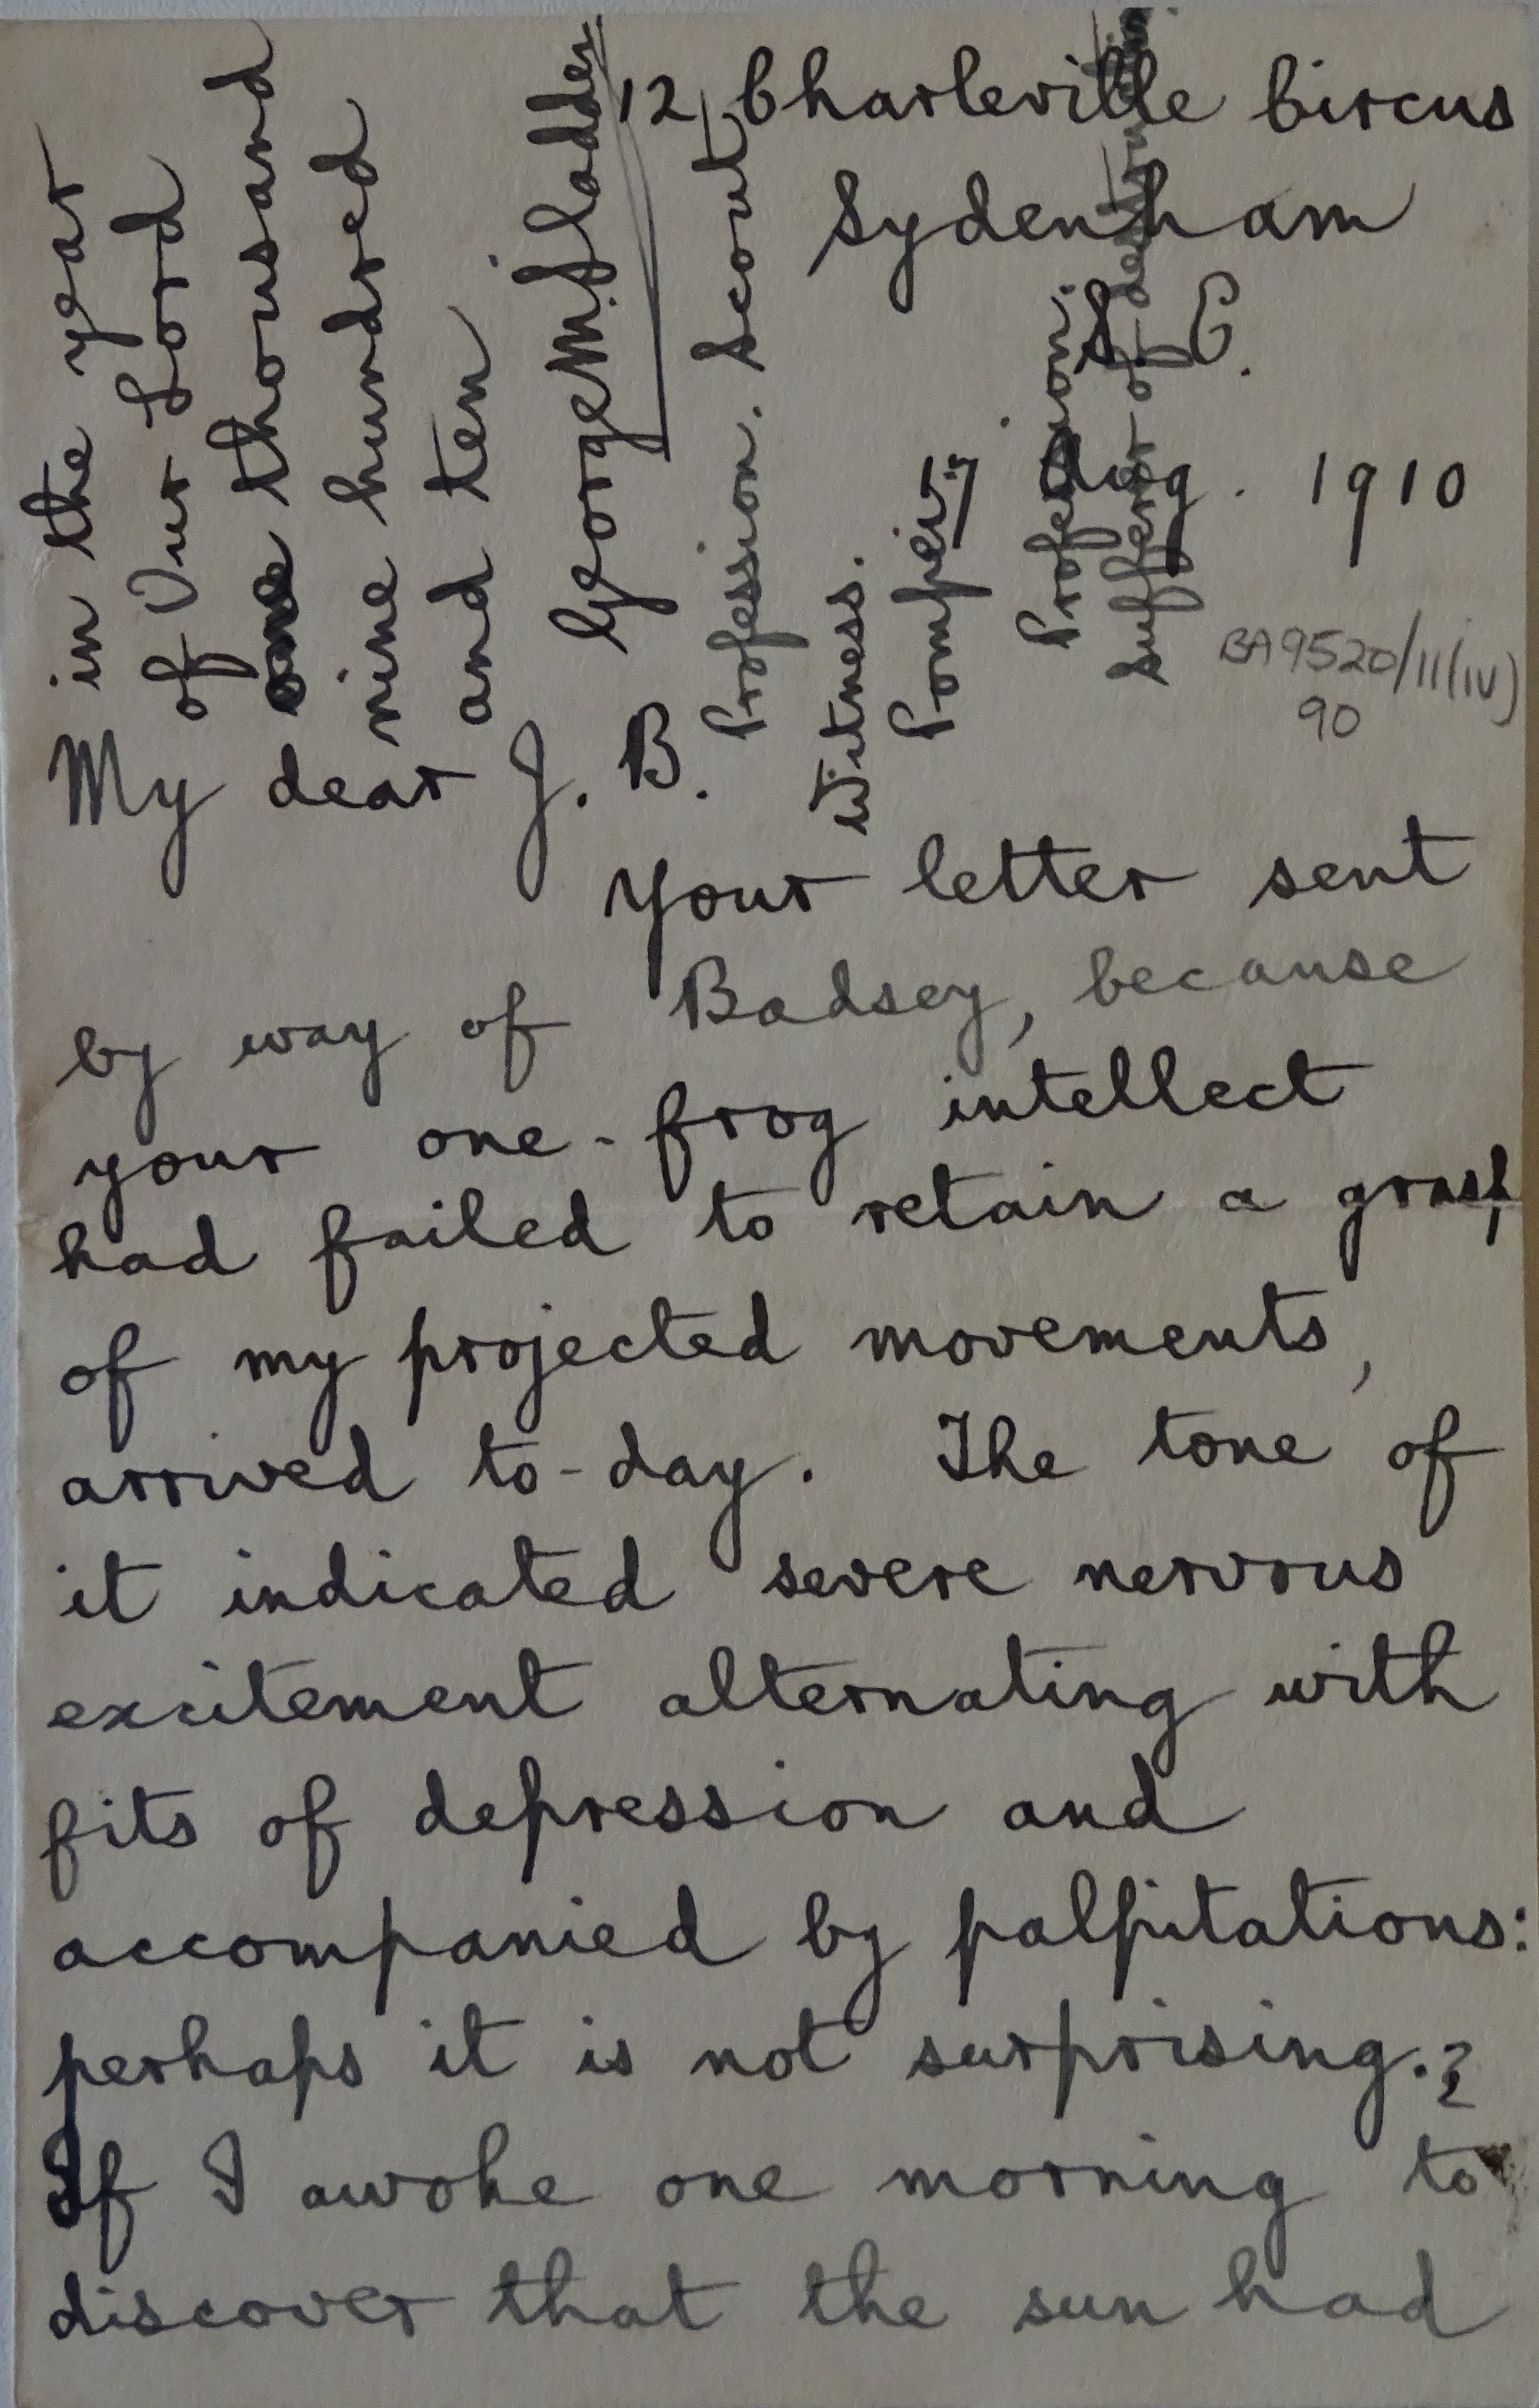 12 Charleville Circus
Sydenham
S. E.
17 Aug. 1910
BA9520/11(iv)
90
My dear J. B.
Your letter sent
by way of Badsey, because
your one-frog intellect
had failed to retain a grasp
of my projected movements,
arrived to-day. The tone of
it indicated severe nervous
excitement alternating with
fits of depression and
accompanied by palpitations:
perhaps it is not surprising.
If I awoke one morning to
discover that the sun had
in the year
of Our Lord
one thousand
nine hundred
and ten
George M.
Profession. Scout
Witness.
Pompei
Profession:
sufferer of